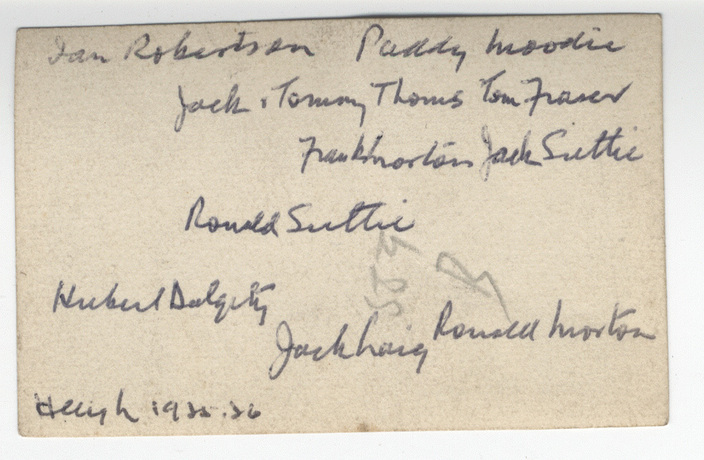 Ian Robertson Paddy Moodie
Jack & Tommy Thoms Tom Fraser
Frank Morton Jack Suttie
Ronald Suttie
Hubert Dalgety
Jack Craig Ronald Morton
1925.26